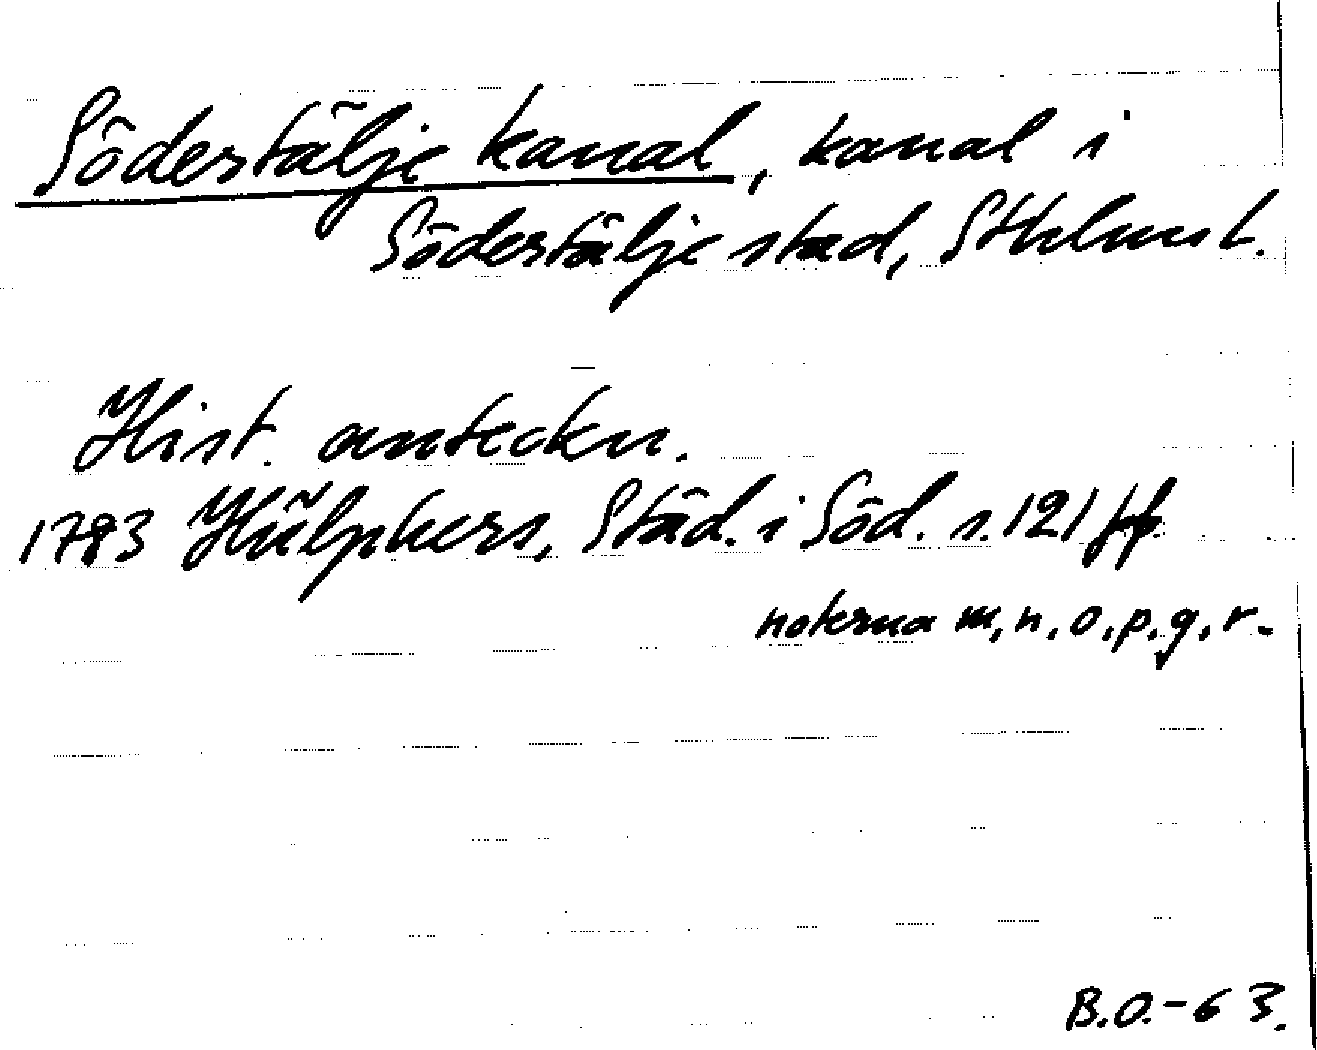 Södertälje kanal, kanal i
Södertälje stad, Sthlms l.
Hist. anteckn.
1783 Hülphers, Städ. i Söd. s. 121 ff
noterna m, n, o, p, q, r.
B.O.-63.